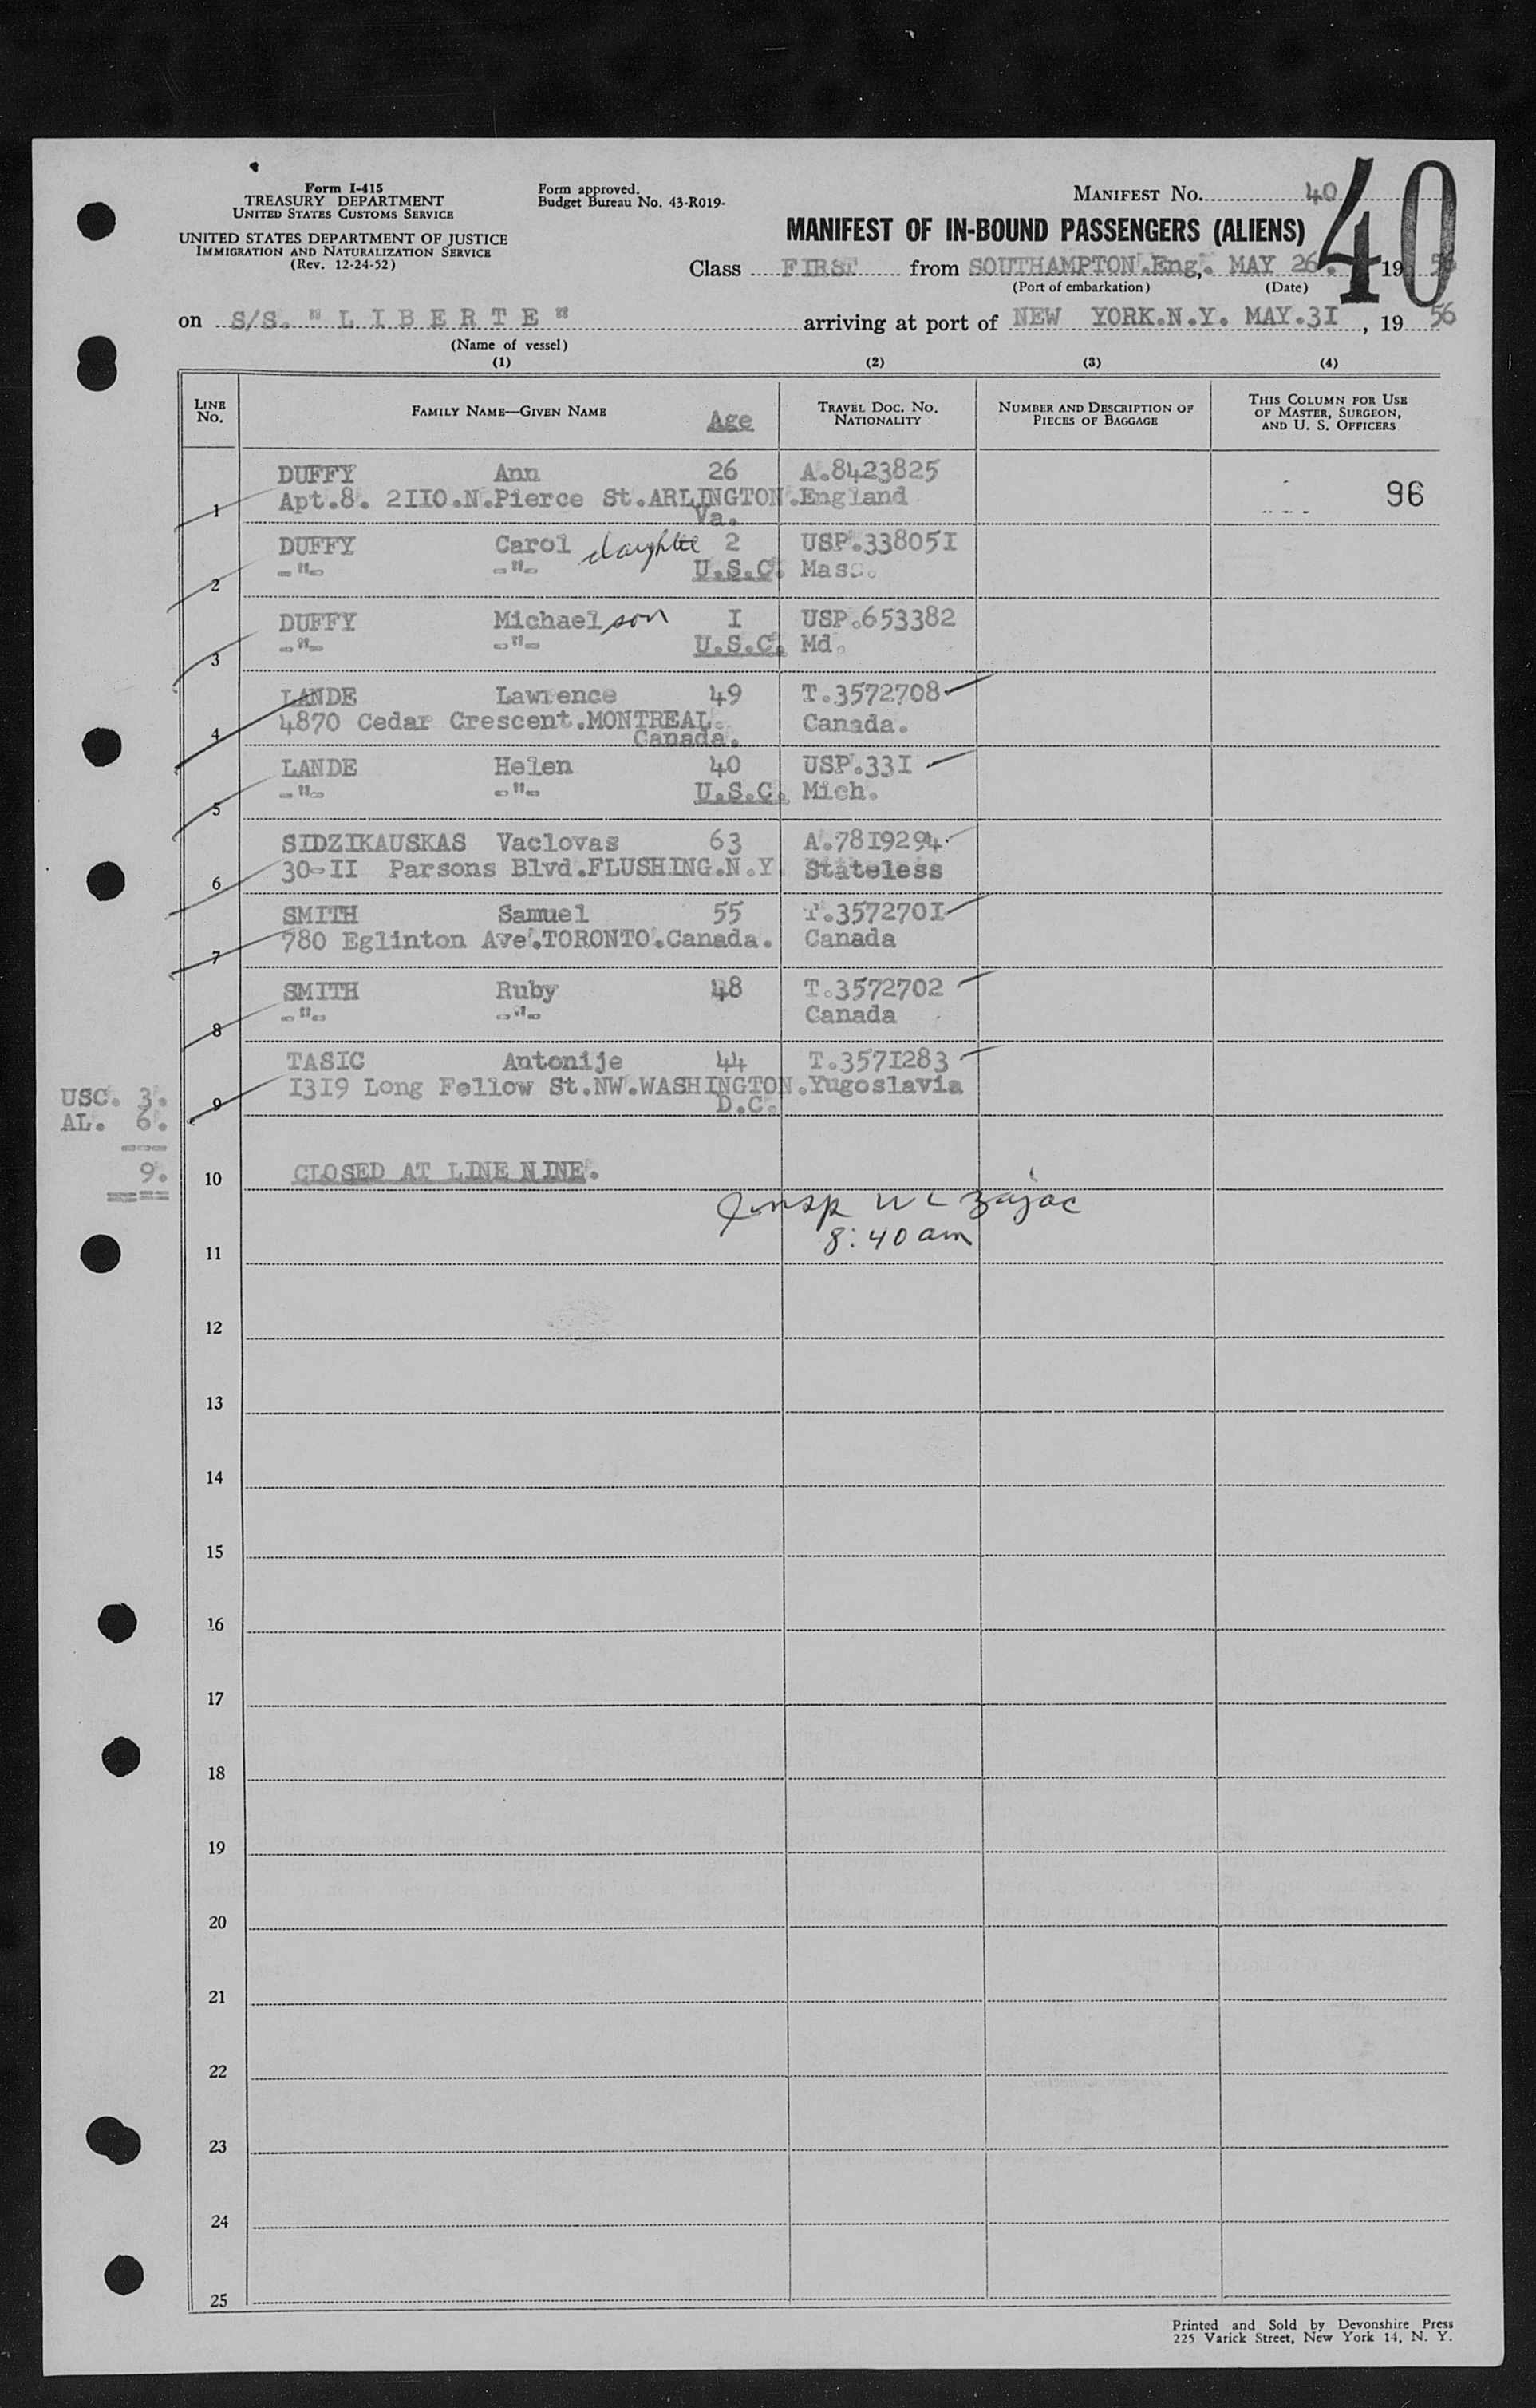 Form I-415
TREASURY DEPARTMENT
UNITED STATES CUSTOMS SERVICE
UNITED STATES DEPARTMENT OF JUSTICE
IMMIGRATION AND NATURALIZATION SERVICE
(Rev. 12-24-52)
Form approved.
Budget Bureau No. 43-R019-
MANIFEST No. 40
40
MANIFEST OF IN-BOUND PASSENGERS (ALIENS)
Class FIRST from SOUTHAMPTON.Eng,. MAY 26. 19 56
(Port of embarkation) (Date)
on S/S. "LIBERTE" arriving at port of NEW YORK.N.Y. MAY.3I, 19 56
(Name of vessel)
(1) (2) (3) (4)
LINE No. FAMILY NAME—GIVEN NAME Age TRAVEL DOC. NO. NATIONALITY NUMBER AND DESCRIPTION OF PIECES OF BAGGAGE THIS COLUMN FOR USE OF MASTER, SURGEON, AND U. S. OFFICERS
DUFFY Ann 26 A.8423825
1 Apt.8. 2II0.N.Pierce St.ARLINGTON.England 96
Va.
DUFFY Carol daughter 2 USP.33805I
2 -"- -"- U.S.C. Mass.
DUFFY Michael son I USP.653382
3 -"- -"- U.S.C. Md.
LANDE Lawrence 49 T.3572708
4 4870 Cedar Crescent.MONTREAL. Canada.
Canada.
LANDE Helen 40 USP.33I
5 -"- -"- U.S.C. Mich.
SIDZIKAUSKAS Vaclovas 63 A.78I9294
6 30-II Parsons Blvd.FLUSHING.N.Y. Stateless
SMITH Samuel 55 T.357270I
7 780 Eglinton Ave.TORONTO.Canada. Canada
SMITH Ruby 48 T.3572702
8 -"- -"- Canada
TASIC Antonije 44 T.357I283
9 I3I9 Long Fellow St.NW.WASHINGTON.Yugoslavia
D.C.
USC. 3.
AL. 6.
---
9.
====
10 CLOSED AT LINE NINE.
Insp W L Zajac
8:40 am
11
12
13
14
15
16
17
18
19
20
21
22
23
24
25
Printed and Sold by Devonshire Press
225 Varick Street, New York 14, N. Y.